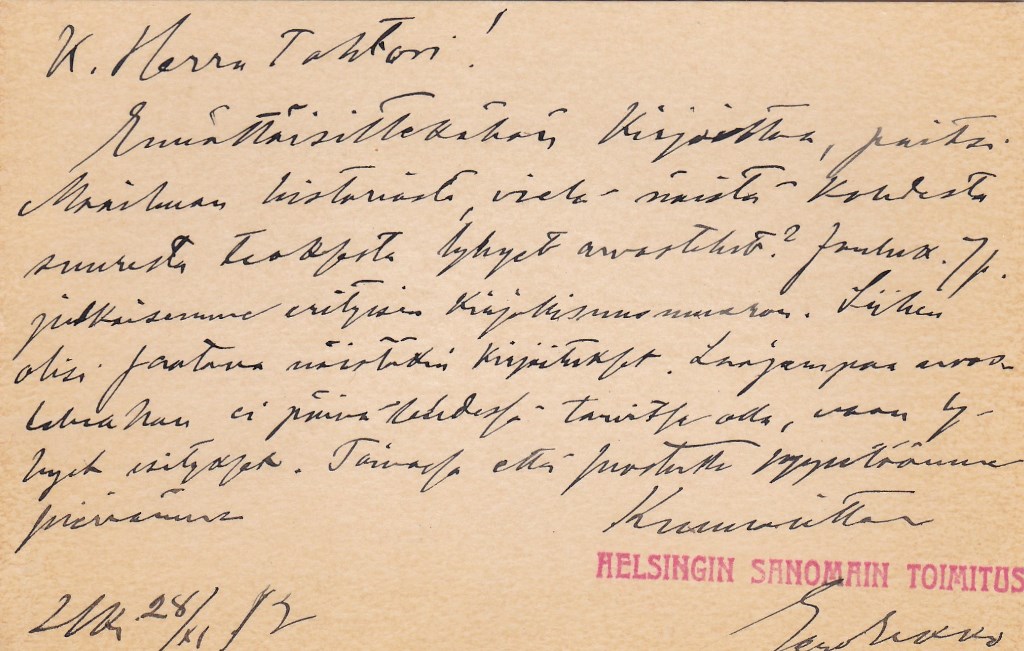 K. Herra Tohtori!
Ennättäisittekähän kirjoittaa, paitsi
Maailman historiasta, vielä näistä kahdesta
suuresta teoksesta lyhyet arvostelut? Jouluk. 7 p.
julkaisemme erityisen kirjallisuusnumeron. Siihen
olisi saatava näistäkin kirjoitukset. Laajempaa arvos-
teluahan ei päivälehdessä tarvitse olla, vaan ly-
hyet esitykset. Toivossa että suostutte pyyntöömme
piirrämme
Kunnioittaen
HELSINGIN SANOMAIN TOIMITUS
28/XI
Eero Erkko